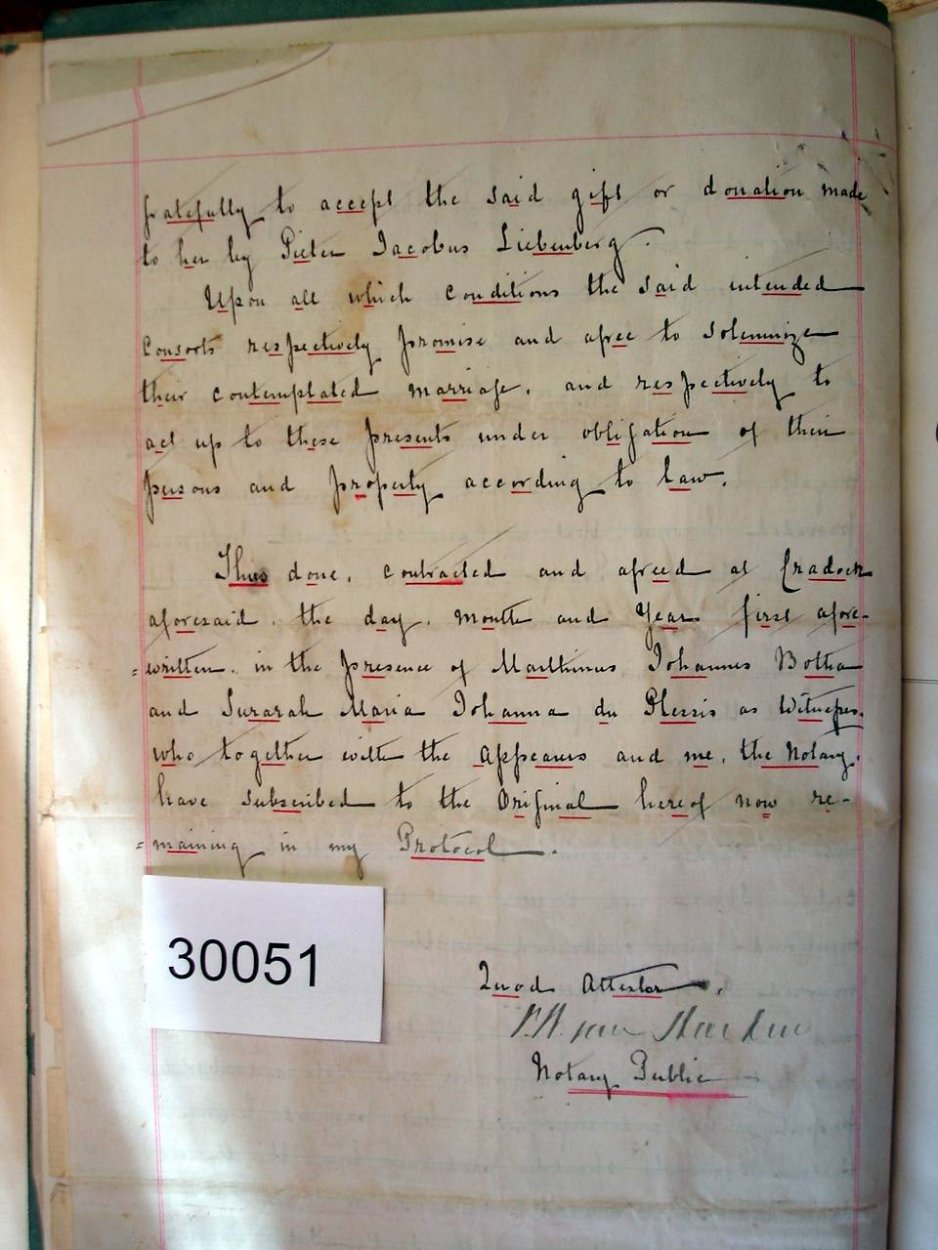 gratefully to accept the said gift or donation made
to her by Pieter Jacobus Liebenberg.
Upon all which conditions the said intended
Consorts respectively promise and agree to solemnize
their contemplated marriage, and respectively to
act up to these presents under obligation of their
persons and property according to law.
Thus done, contracted and agreed at Cradock
aforesaid, the day, month and Year first afore-
=written, in the presence of Marthinus Johannes Botha
and Surarah Maria Johanna du Plessis as Witnesses,
who together with the Appearers and me, the Notary,
have subscribed to the Original hereof now re-
=maining in my Protocol.
30051
Quod Attestor,
Notary Public